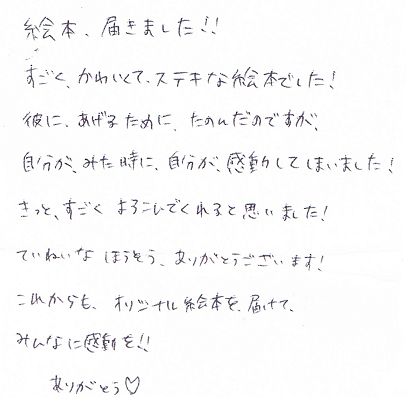 絵本、届きました!!
すごく、かわいくて、ステキな絵本でした!
彼に、あげるために、たのんだのですが、
自分が、みた時に、自分が、感動してしまいました!
きっと、すごく よろこんでくれると思いました!
ていねいな ほうそう、ありがとうございます!
これからも、オリジナル絵本を、届けて、
みんなに感動を!!
ありがとう♡